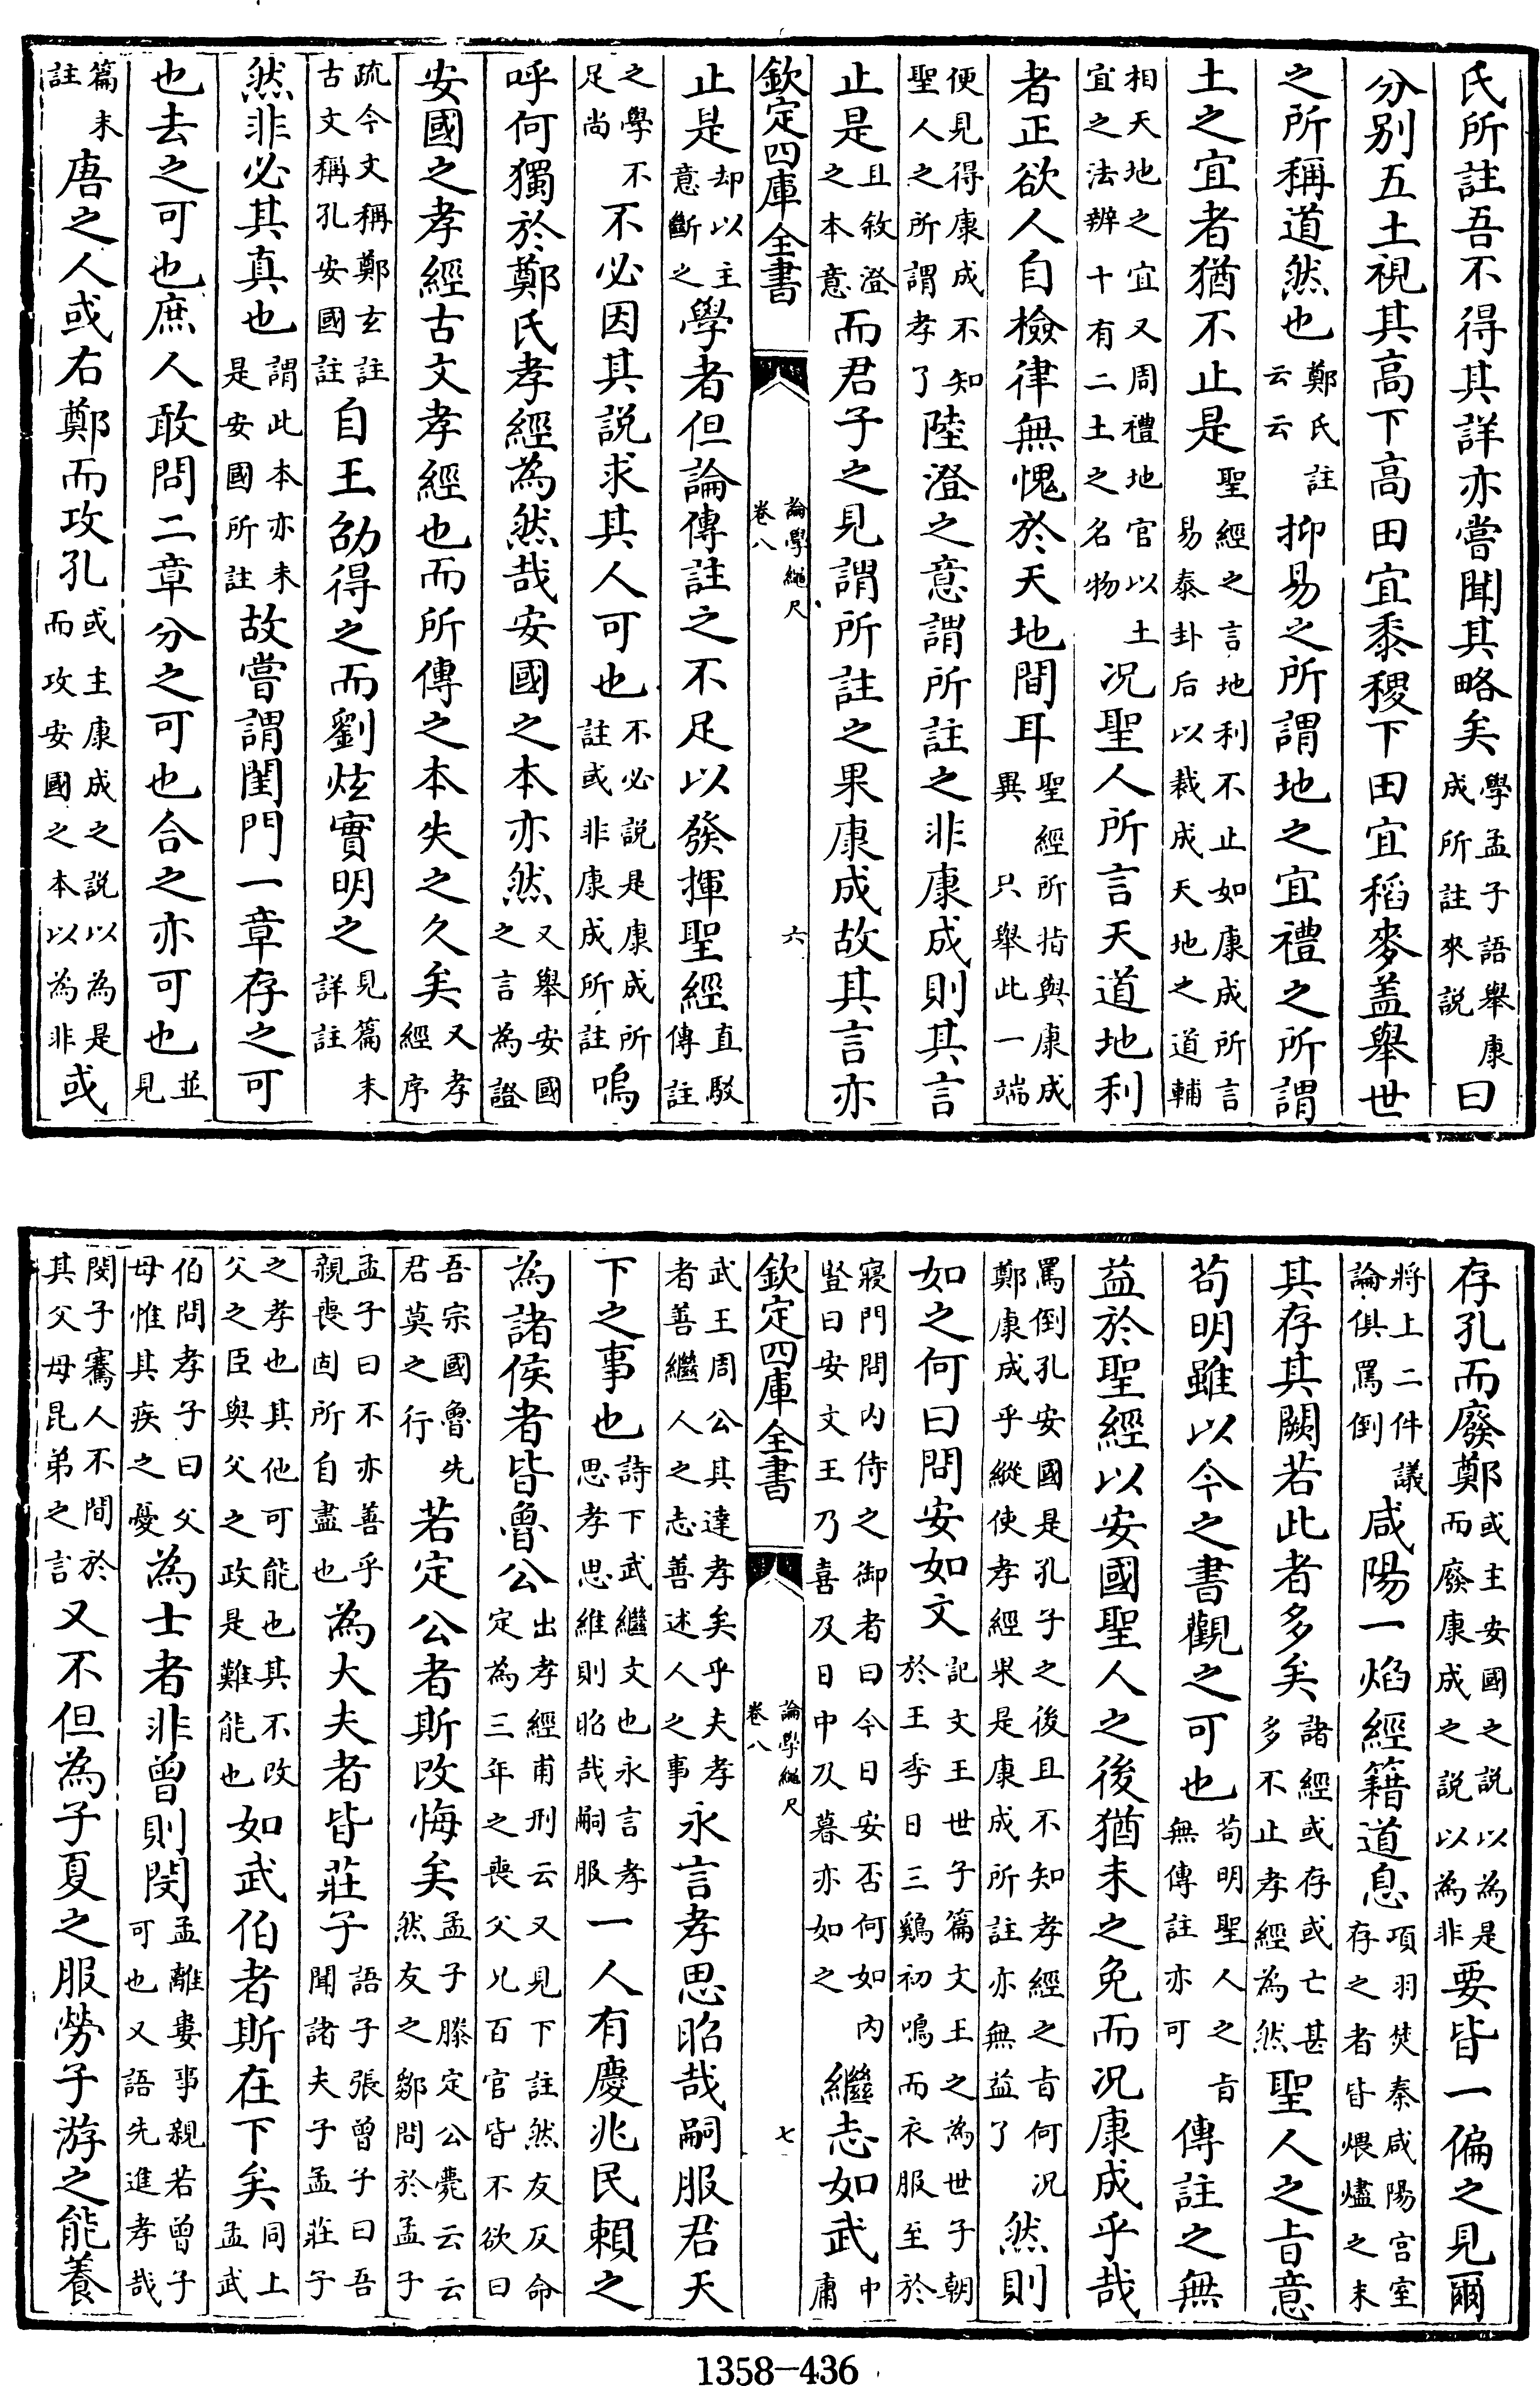 氏所註吾不得其詳亦嘗聞其略矣學孟子語舉康成所註來説曰
分别五土視其高下高田宜黍稷下田宜稻麥盖舉世
之所稱道然也鄭氏註云云抑易之所謂地之宜禮之所謂
土之宜者猶不止是聖經之言地利不止如康成所言易泰卦后以裁成天地之道輔
相天地之宜又周禮地官以土宜之法辨十有二土之名物况聖人所言天道地利
者正欲人自檢律無愧於天地間耳聖經所指與康成異只舉此一端
便見得康成不知聖人之所謂孝了陸澄之意謂所註之非康成則其言
止是且敘澄之本意而君子之見謂所註之果康成故其言亦
欽定四庫全書
論學繩尺
卷八
六
止是却以主意斷之學者但論傳註之不足以發揮聖經直駁傳註
之學不足尚不必因其説求其人可也不必説是康成所註或非康成所註嗚
呼何獨於鄭氏孝經為然哉安國之本亦然又舉安國之言為證
安國之孝經古文孝經也而所傳之本失之久矣又孝經序
疏今文稱鄭玄註古文稱孔安國註自王劭得之而劉炫實明之見篇末詳註
然非必其真也謂此本亦未是安國所註故嘗謂閨門一章存之可
也去之可也庶人敢問二章分之可也合之亦可也並見
篇末註唐之人或右鄭而攻孔或主康成之説以為是而攻安國之本以為非或
存孔而廢鄭或主安國之説以為是而廢康成之説以為非要皆一偏之見爾
將上二件議論俱罵倒咸陽一焰經籍道息項羽焚秦咸陽宫室存之者皆煨燼之末
其存其闕若此者多矣諸經或存或亡甚多不止孝經為然聖人之㫖意
苟明雖以今之書觀之可也苟明聖人之㫖無傳註亦可傳註之無
益於聖經以安國聖人之後猶未之免而况康成乎哉
罵倒孔安國是孔子之後且不知孝經之㫖何况鄭康成乎縱使孝經果是康成所註亦無益了然則
如之何曰問安如文記文王世子篇文王之為世子朝於王季日三鷄初鳴而衣服至於
寢門問内侍之御者曰今日安否何如内豎曰安文王乃喜及日中及暮亦如之繼志如武中庸
欽定四庫全書
論學繩尺
卷八
七
武王周公其達孝矣乎夫孝者善繼人之志善述人之事永言孝思昭哉嗣服君天
下之事也詩下武繼文也永言孝思孝思維則昭哉嗣服一人有慶兆民賴之
為諸侯者皆魯公出孝經甫刑云又見下註然友反命定為三年之喪父兄百官皆不欲曰
吾宗國魯先君莫之行若定公者斯改悔矣孟子滕定公薨云云然友之鄒問於孟子
孟子曰不亦善乎親喪固所自盡也為大夫者皆莊子語子張曾子曰吾聞諸夫子孟莊子
之孝也其他可能也其不改父之臣與父之政是難能也如武伯者斯在下矣同上孟武
伯問孝子曰父母惟其疾之憂為士者非曾則閔孟離婁事親若曾子可也又語先進孝哉
閔子騫人不間於其父母昆弟之言又不但為子夏之服勞子游之能養
1358-436